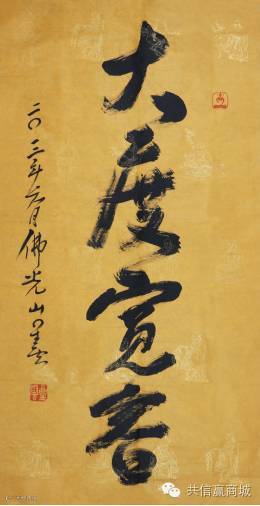 大度寬容
二〇一三年元月佛光山星雲
共信赢商城